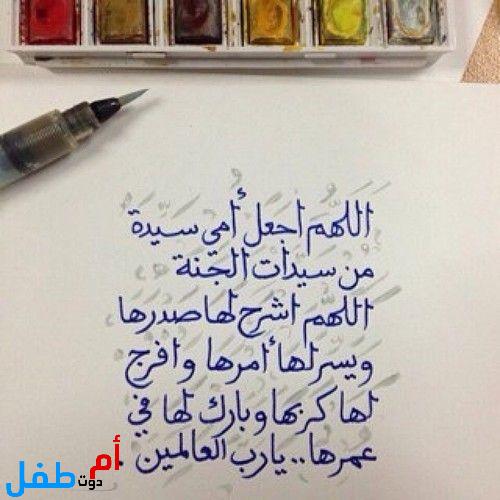 اللهم اجعل أمي سيدة
من سيدات الجنة
اللهم اشرح لها صدرها
ويسر لها أمرها وافرج
لها كربها وبارك لها في
عمرها.. يارب العالمين .
أم دوت طفل